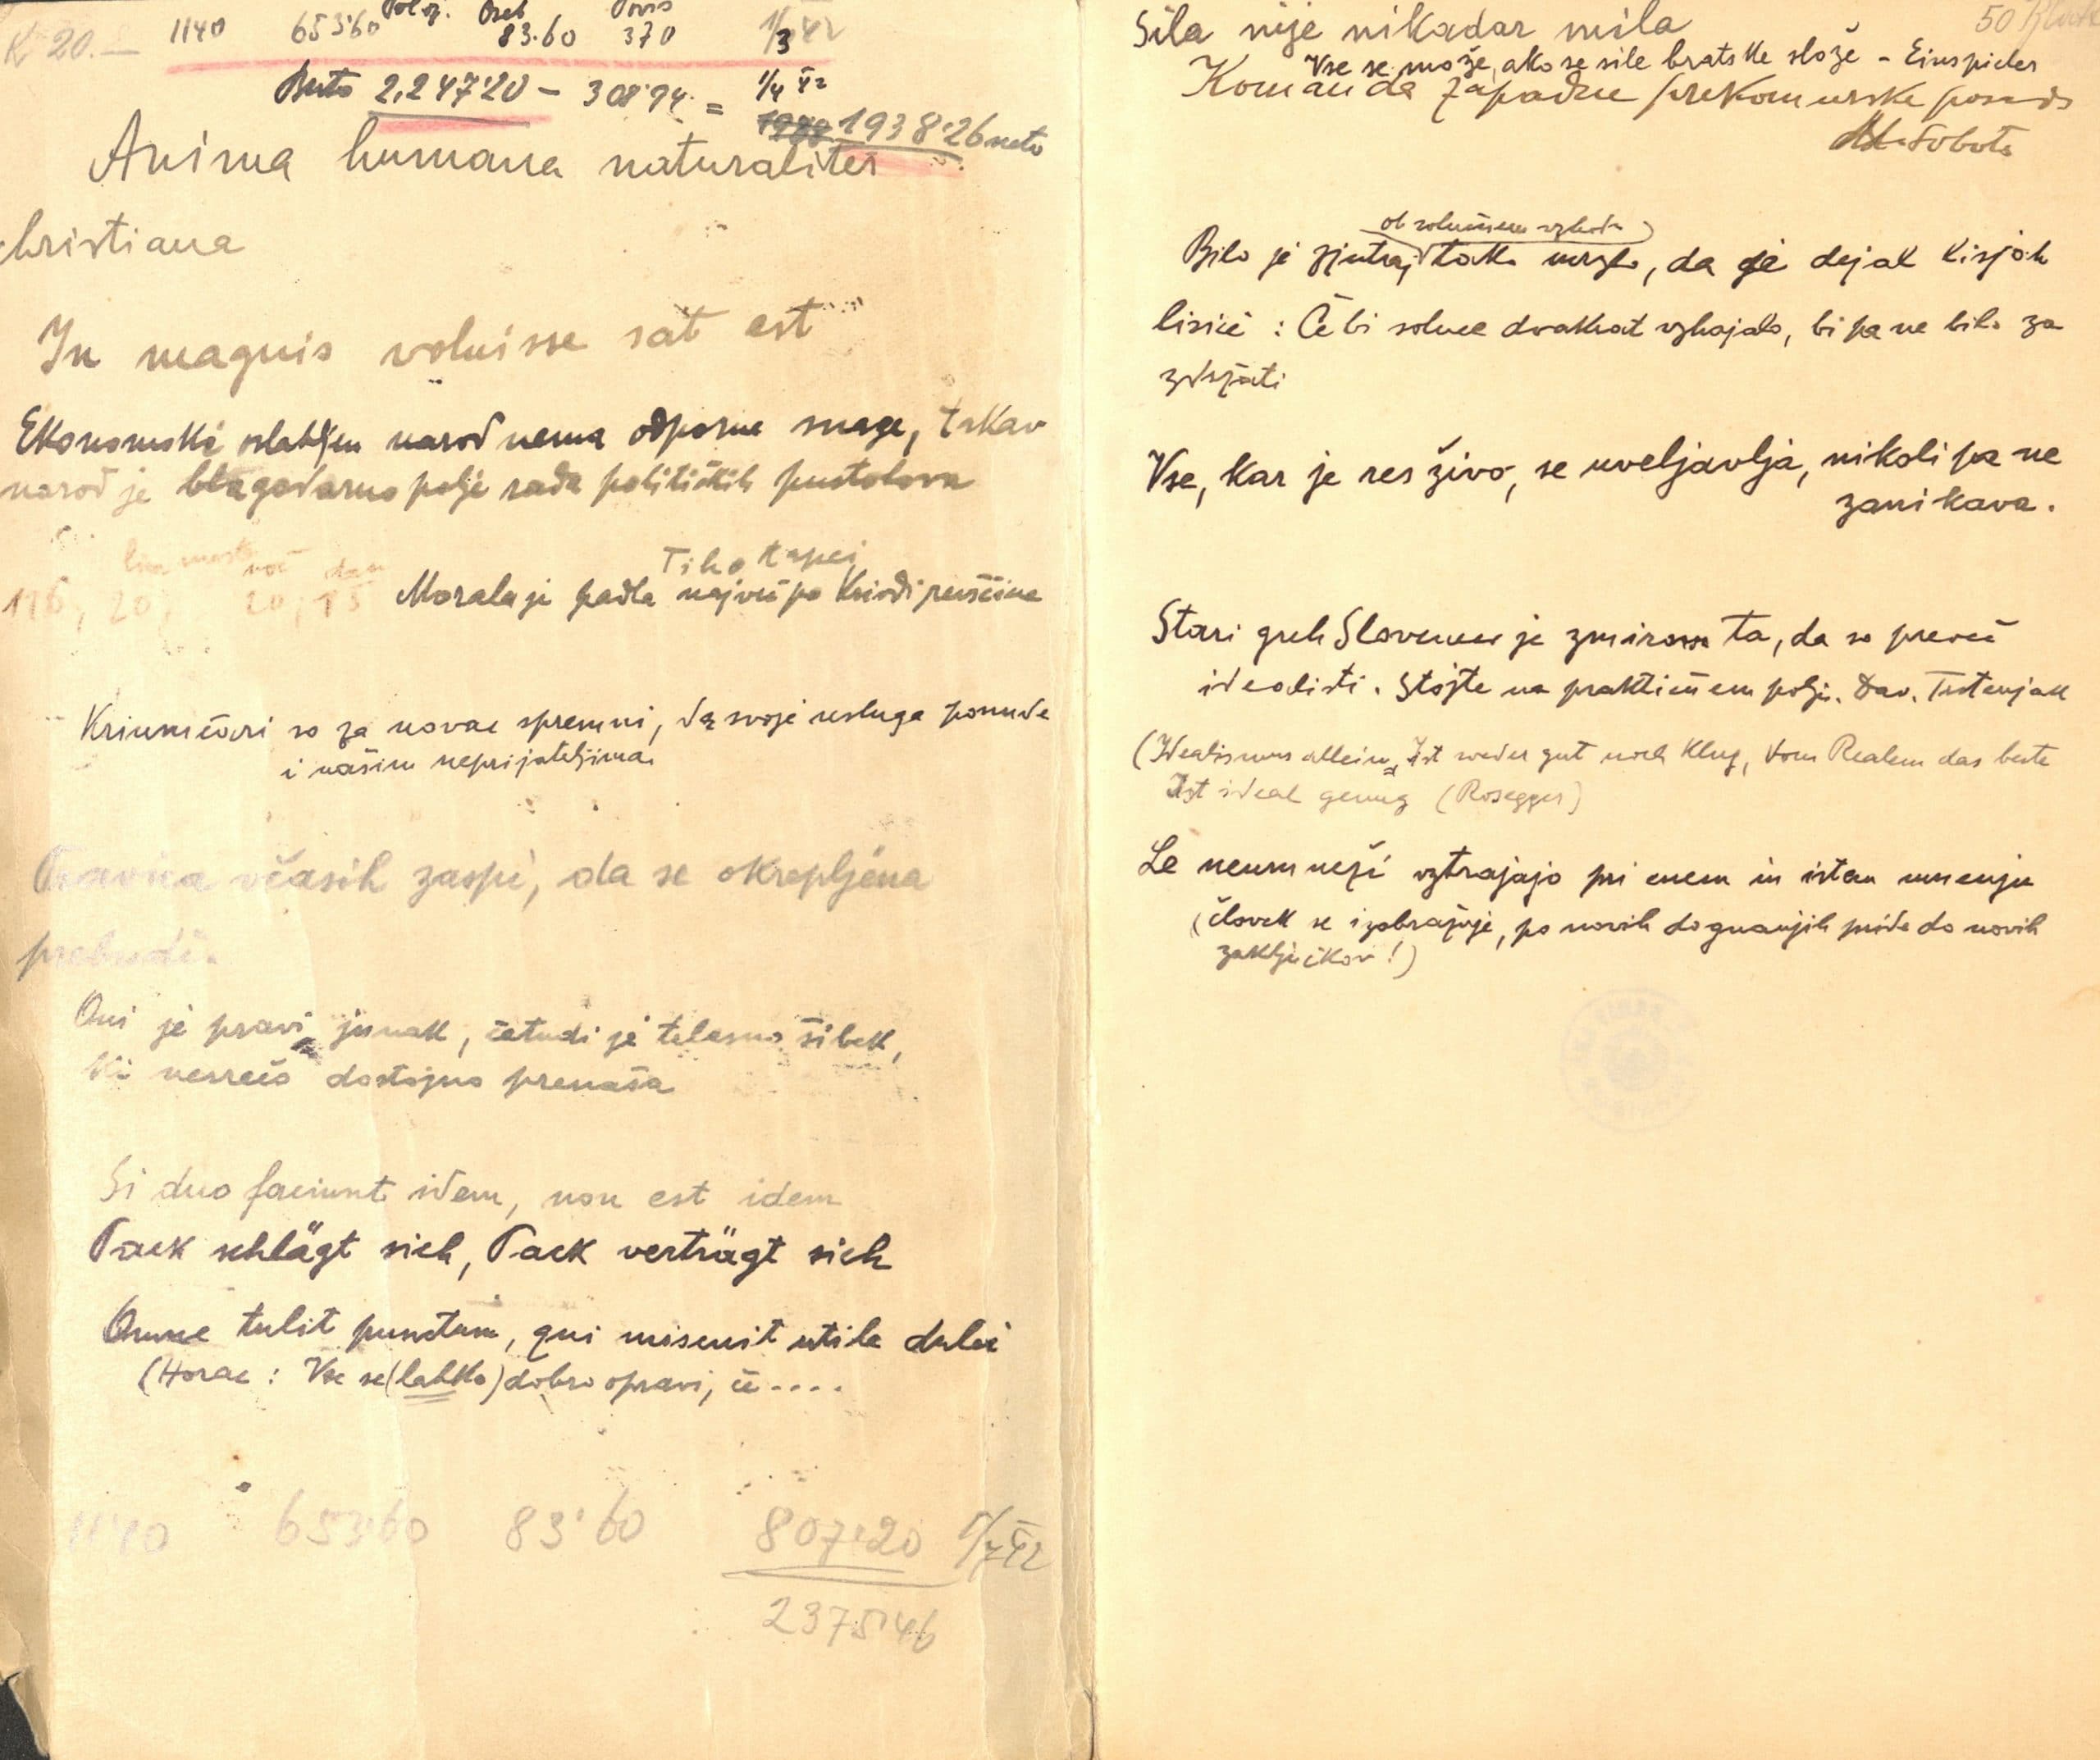 K 20.— 1140 653'60 83.60 370 1/3 42
Bruto 2,247'20 — 308'94 = 1/4 42
1938'26 neto
Anima humana naturaliter
christiana
In magnis voluisse sat est
Ekonomski oslabljen narod nema odporne snage, takav
narod je blagodarno polje rada političkih pustolova
Tihotapci
116, 20, 20, 15 Morala je padla najveć po krivdi
Kriumčari so za novac spremni, da svoje usluge ponude
i našim neprijateljima.
Pravica včasih zaspi, da se okrepljena
prebudi.
Oni je pravi junak, četudi je telesno šibek,
ki nesrečo dostojno prenaša
Si duo faciunt idem, non est idem
Pack schlägt sich, Pack verträgt sich
Omne tulit punctum, qui miscuit utile dulci
(Horac: Vse se (lahko) dobro opravi, če....
11'40 653'60 83'60 807'20 1/7 42
2375'46
Sila nije nikadar mila
50
Vse se može, ako se sile bratske slože - Einspieler
Komanda zapadne prekomurske posade
M. Sobota
ob solnčnem vzhodu
Bilo je zjutraj tako mrzlo, da je dejal
lisici: Če bi solnce dvakrat vzhajalo, bi pa ne bilo za
zdržati
Vse, kar je res živo, se uveljavlja, nikoli pa ne
zanikava.
Stari greh Slovencev je zmirom ta, da so preveč
idealisti. Stojte na praktičnem polju. Dav. Trstenjak
(Idealismus allein, Ist weder gut noch klug, Vom Realem das beste
Ist ideal genug (Rosegger)
Le neumneži vztrajajo pri enem in istem mnenju
(človek se izobražuje, po novih dognanjih pride do novih
zaključkov!)